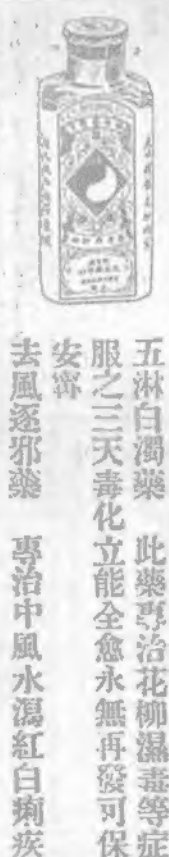 五淋白濁藥　此藥專治花柳濕毒等症
服之三天毒化立能全愈永無再發可保
安寗
去風逐邪藥　專治中風水瀉紅白痢疾